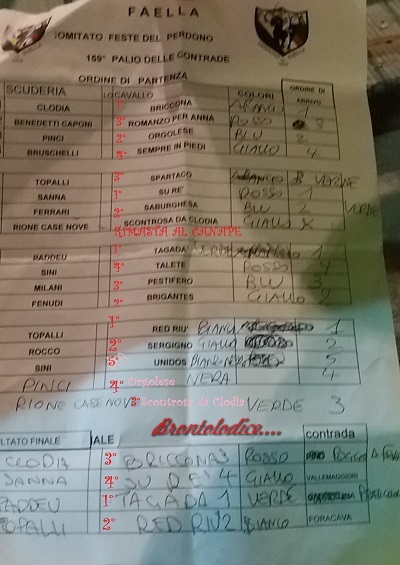 FAELLA
COMITATO FESTE DEL PERDONO
169° PALIO DELLE CONTRADE
ORDINE DI PARTENZA
SCUDERIA CAVALLO COLORI ORDINE DI ARRIVO
CLODIA 1° BRICCONA
BENEDETTI CAPONI 3° ROMANZO PER ANNA ROSSO 3
PINCI 2° ORGOLESE BLU 2
BRUSCHELLI SEMPRE IN PIEDI GIALLO 4
TOPALLI 3° SPARTACO VERDE
SANNA 1° SU RE' ROSSO 1
FERRARI 2° SABURGHESA BLU 2 VERDE
RIONE CASE NOVE SCONTROSA DA CLODIA GIALLO
RIMASTA AL CANAPE
PADDEU 1° TAGADA' 1
SINI 4° TALETE ROSSO 4
MILANI 3° PESTIFERO BLU 3
FENUDI 2° BRIGANTES GIALLO 2
TOPALLI 1° RED RIU' 1
ROCCO 2° SERGIGNO GIALLO 2
SINI 5° UNIDOS 5
PINCI 4° Orgolese NERA 4
RIONE CASE NOVE 3° Scontrosa da Clodia VERDE 3
Brontolodice....
LTATO FINALE ALE contrada
CLODIA 3° BRICCONA 3 ROSSO
SANNA 4° SU RE 4 GIALLO VALLEMAGGIORI
PADDEU 1° TAGADA 1 VERDE
TOPALLI 2° RED RIU 2 BIANCO FORACAVA